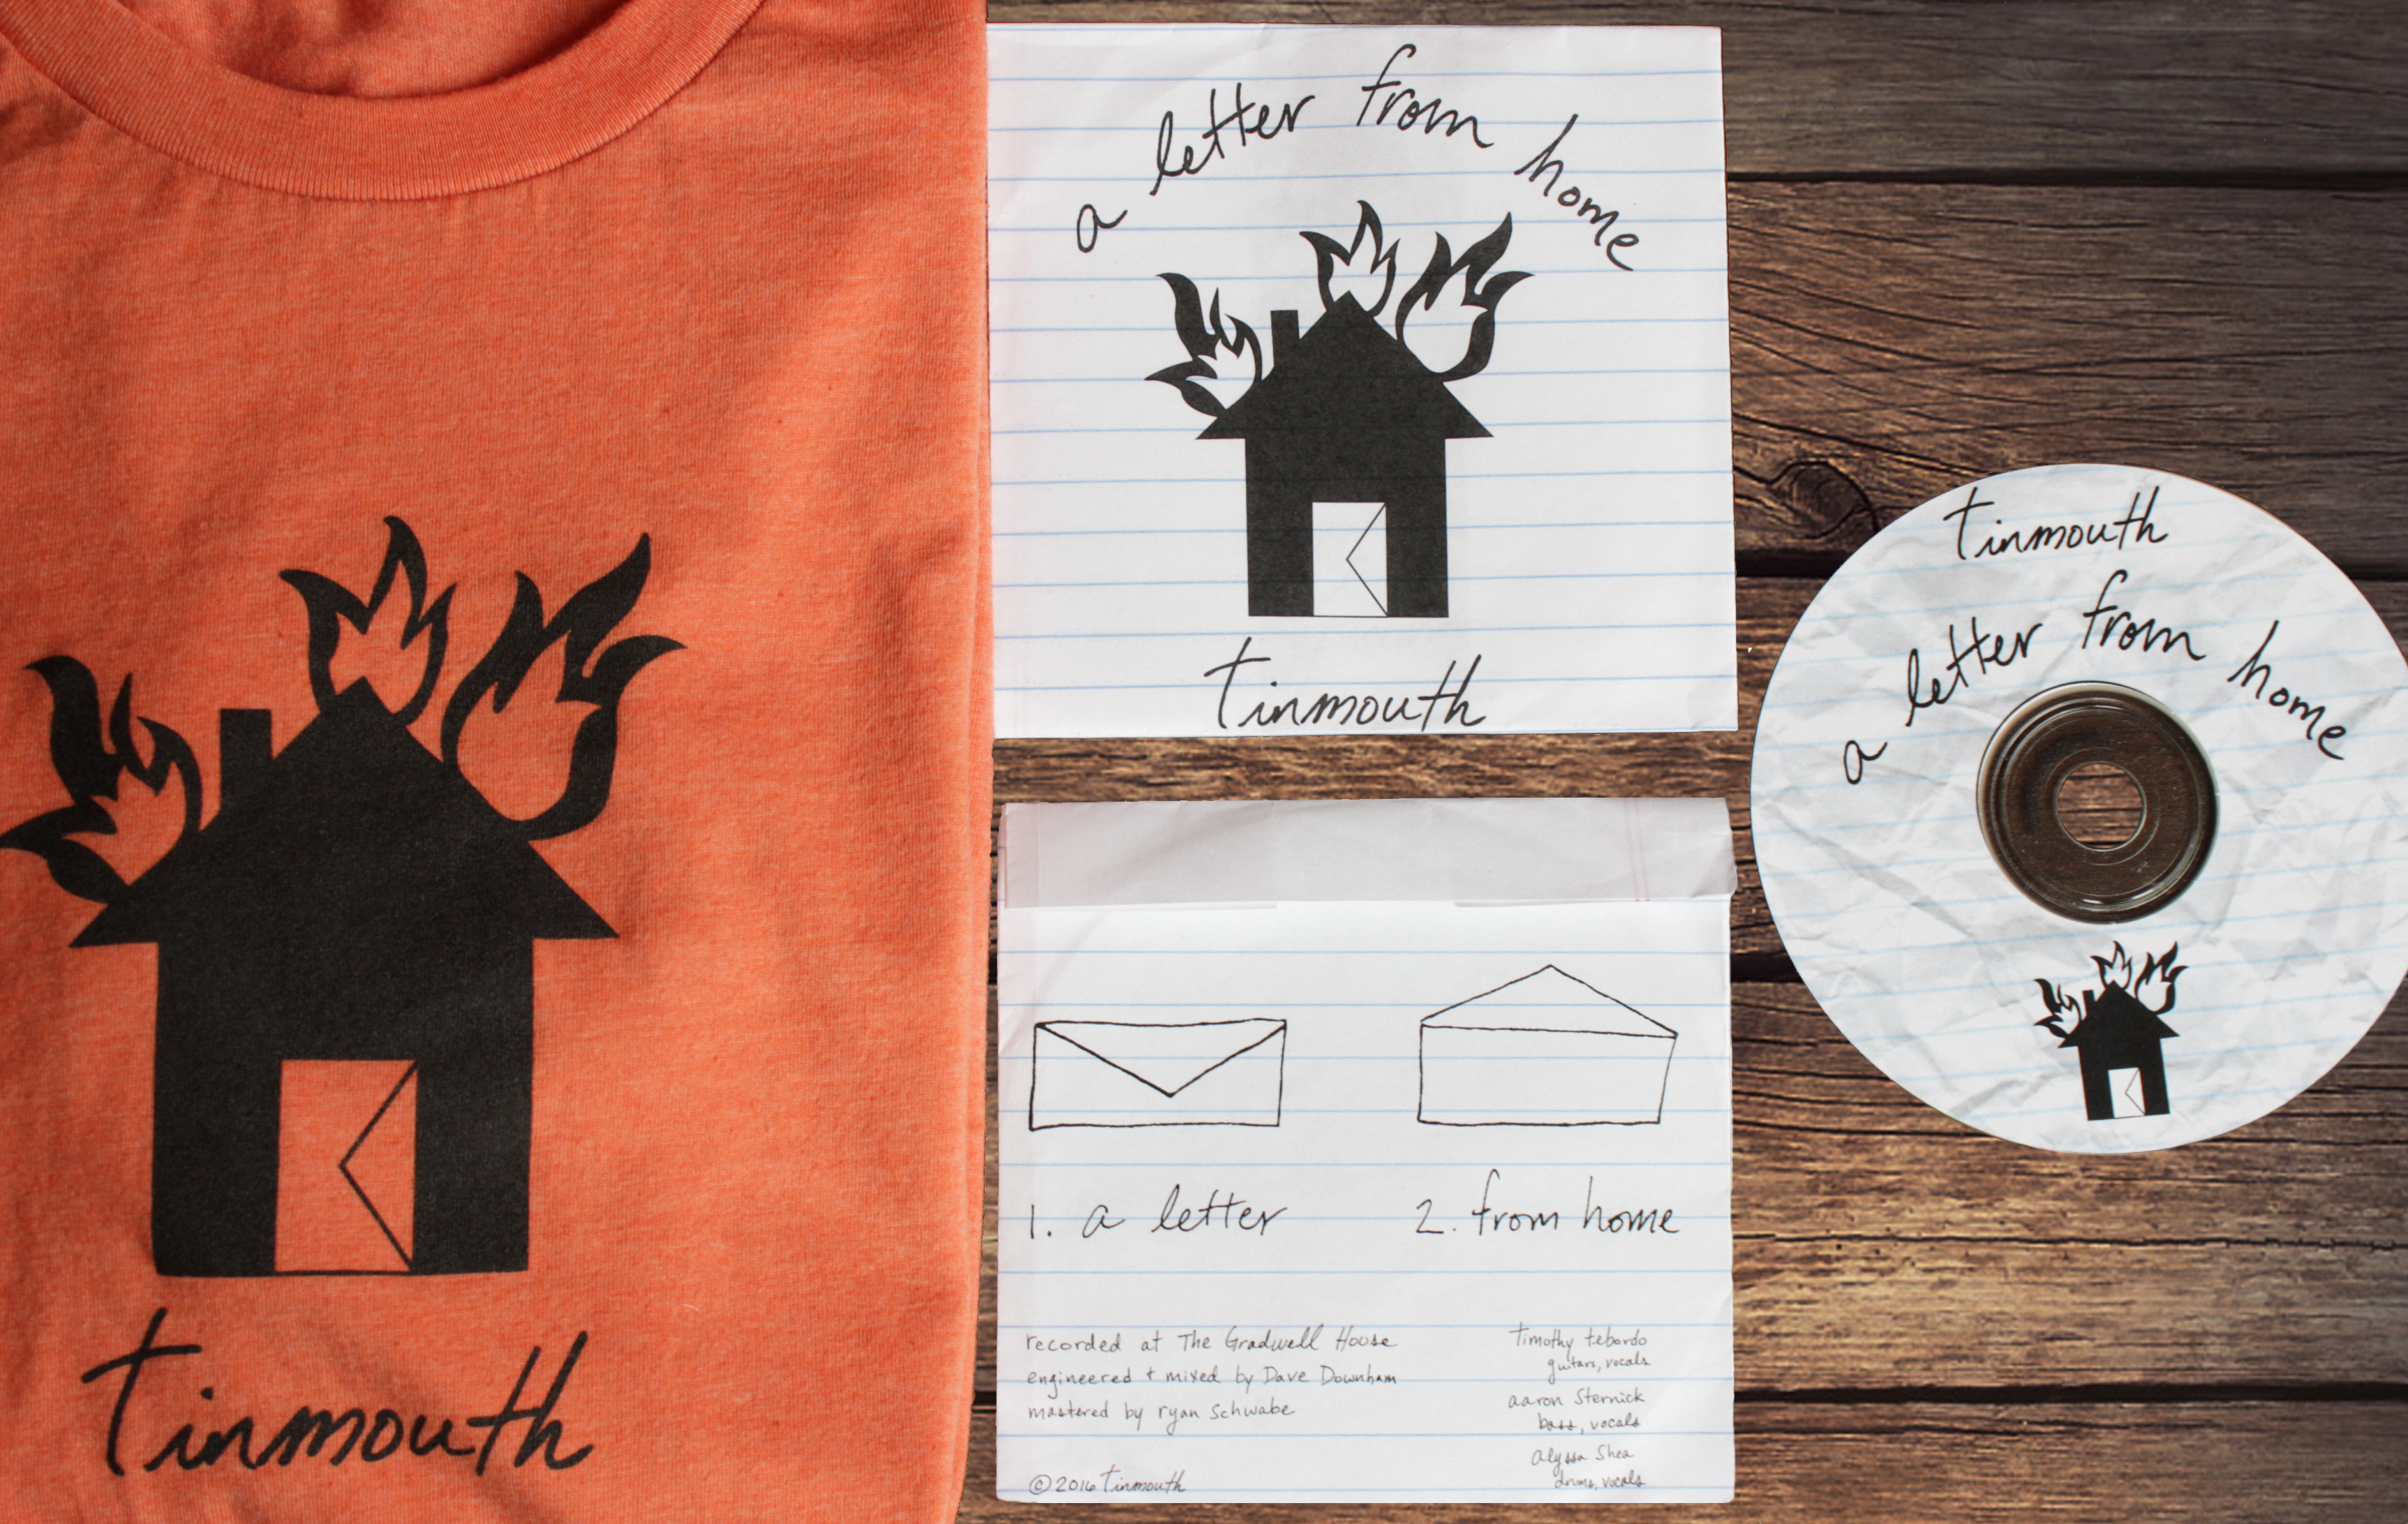 tinmouth
a letter from home
tinmouth
1. a letter
2. from home
recorded at The Gradwell House
engineered + mixed by Dave Downham
mastered by ryan Schwabe
© 2016 tinmouth
timothy tebordo
guitars, vocals
aaron Sternick
bass, vocals
alyssa Shea
drums, vocals
tinmouth
a letter from home